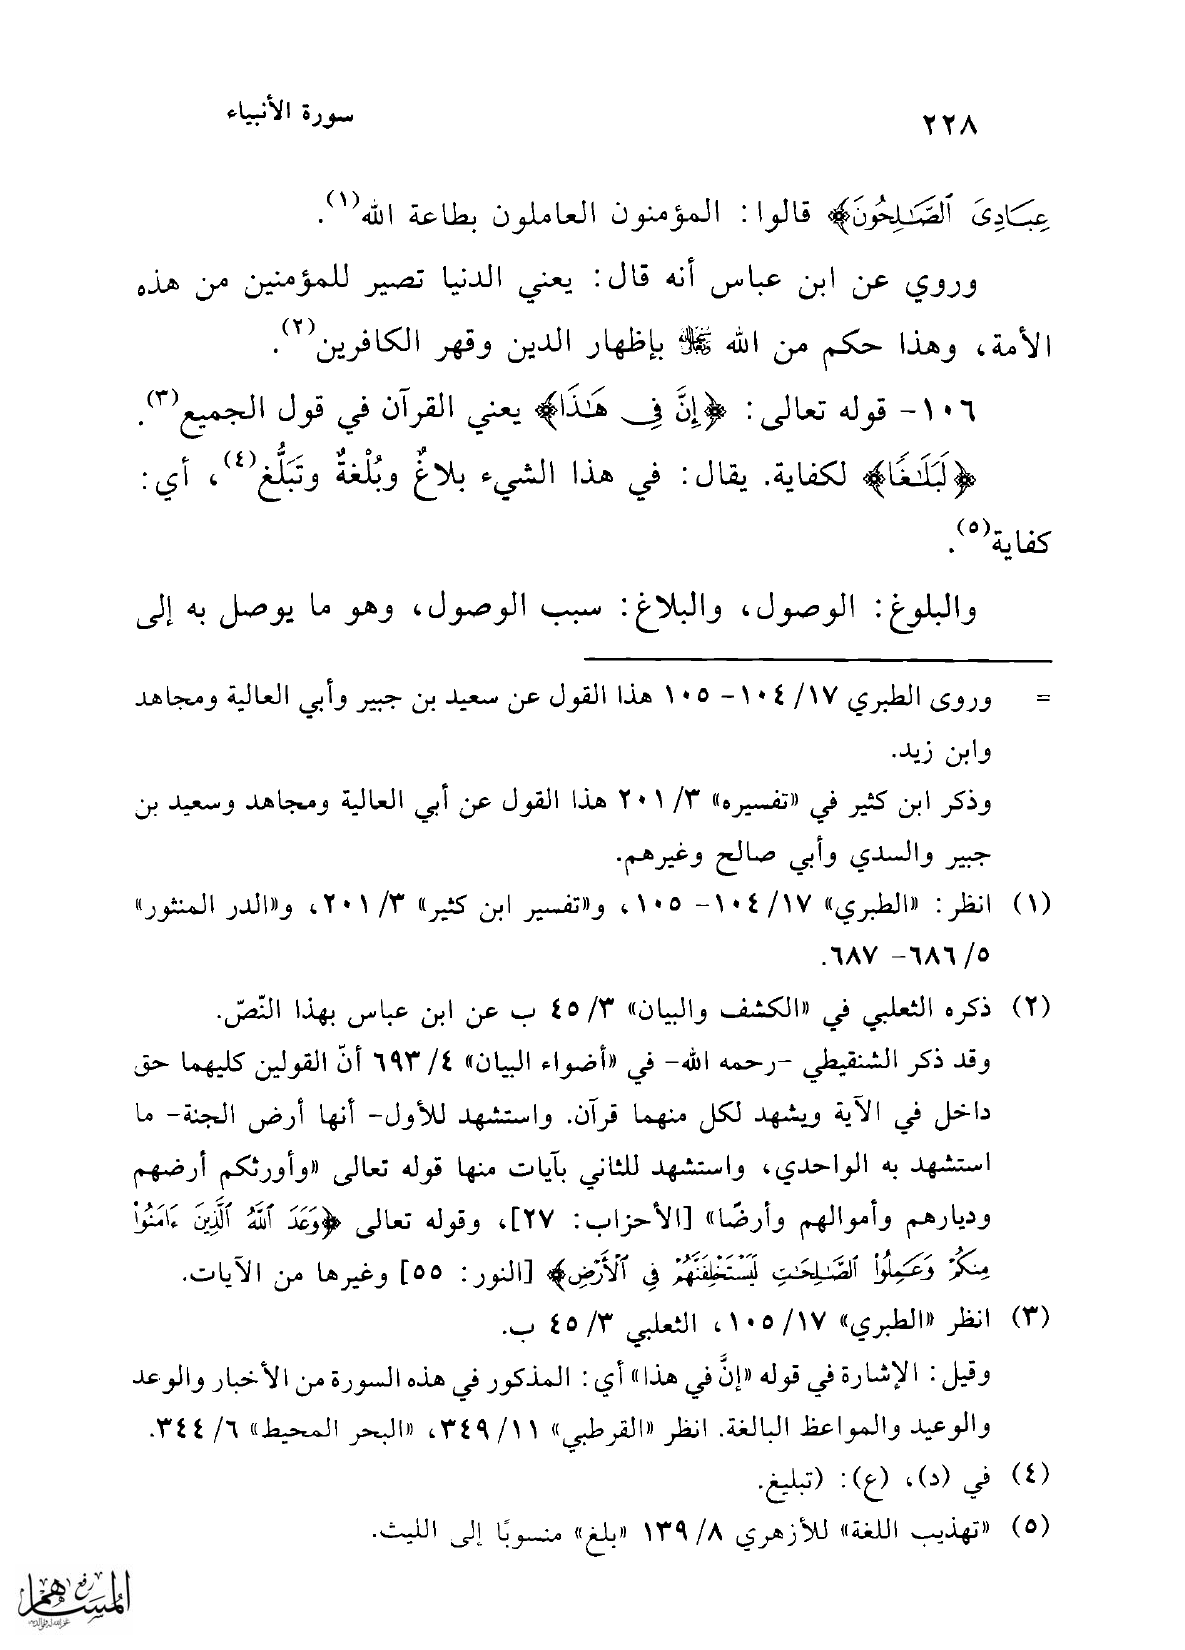 ٢٢٨ سورة الأنبياء
عِبَادِىَ ٱلصَّٰلِحُونَ﴾ قالوا: المؤمنون العاملون بطاعة الله(١).
وروي عن ابن عباس أنه قال: يعني الدنيا تصير للمؤمنين من هذه
الأمة، وهذا حكم من الله ﷻ بإظهار الدين وقهر الكافرين(٢).
١٠٦- قوله تعالى: ﴿إِنَّ فِى هَٰذَا﴾ يعني القرآن في قول الجميع(٣).
﴿لَبَلَٰغًا﴾ لكفاية. يقال: في هذا الشيء بلاغٌ وبُلْغةٌ وتَبَلُّغ(٤)، أي:
كفاية(٥).
والبلوغ: الوصول، والبلاغ: سبب الوصول، وهو ما يوصل به إلى
= وروى الطبري ١٧/ ١٠٤- ١٠٥ هذا القول عن سعيد بن جبير وأبي العالية ومجاهد
وابن زيد.
وذكر ابن كثير في «تفسيره» ٣/ ٢٠١ هذا القول عن أبي العالية ومجاهد وسعيد بن
جبير والسدي وأبي صالح وغيرهم.
(١) انظر: «الطبري» ١٧/ ١٠٤- ١٠٥، و«تفسير ابن كثير» ٣/ ٢٠١، و«الدر المنثور»
٥/ ٦٨٦- ٦٨٧.
(٢) ذكره الثعلبي في «الكشف والبيان» ٣/ ٤٥ ب عن ابن عباس بهذا النّصّ.
وقد ذكر الشنقيطي -رحمه الله- في «أضواء البيان» ٤/ ٦٩٣ أنّ القولين كليهما حق
داخل في الآية ويشهد لكل منهما قرآن. واستشهد للأول- أنها أرض الجنة- ما
استشهد به الواحدي، واستشهد للثاني بآيات منها قوله تعالى «وأورثكم أرضهم
وديارهم وأموالهم وأرضًا» [الأحزاب: ٢٧]، وقوله تعالى ﴿وَعَدَ ٱللَّهُ ٱلَّذِينَ ءَامَنُوا۟
مِنكُمْ وَعَمِلُوا۟ ٱلصَّٰلِحَٰتِ لَيَسْتَخْلِفَنَّهُمْ فِى ٱلْأَرْضِ﴾ [النور: ٥٥] وغيرها من الآيات.
(٣) انظر «الطبري» ١٧/ ١٠٥، الثعلبي ٣/ ٤٥ ب.
وقيل: الإشارة في قوله «إنَّ في هذا» أي: المذكور في هذه السورة من الأخبار والوعد
والوعيد والمواعظ البالغة. انظر «القرطبي» ١١/ ٣٤٩، «البحر المحيط» ٦/ ٣٤٤.
(٤) في (د)، (ع): (تبليغ.
(٥) «تهذيب اللغة» للأزهري ٨/ ١٣٩ «بلغ» منسوبًا إلى الليث.
رفع
المساهم